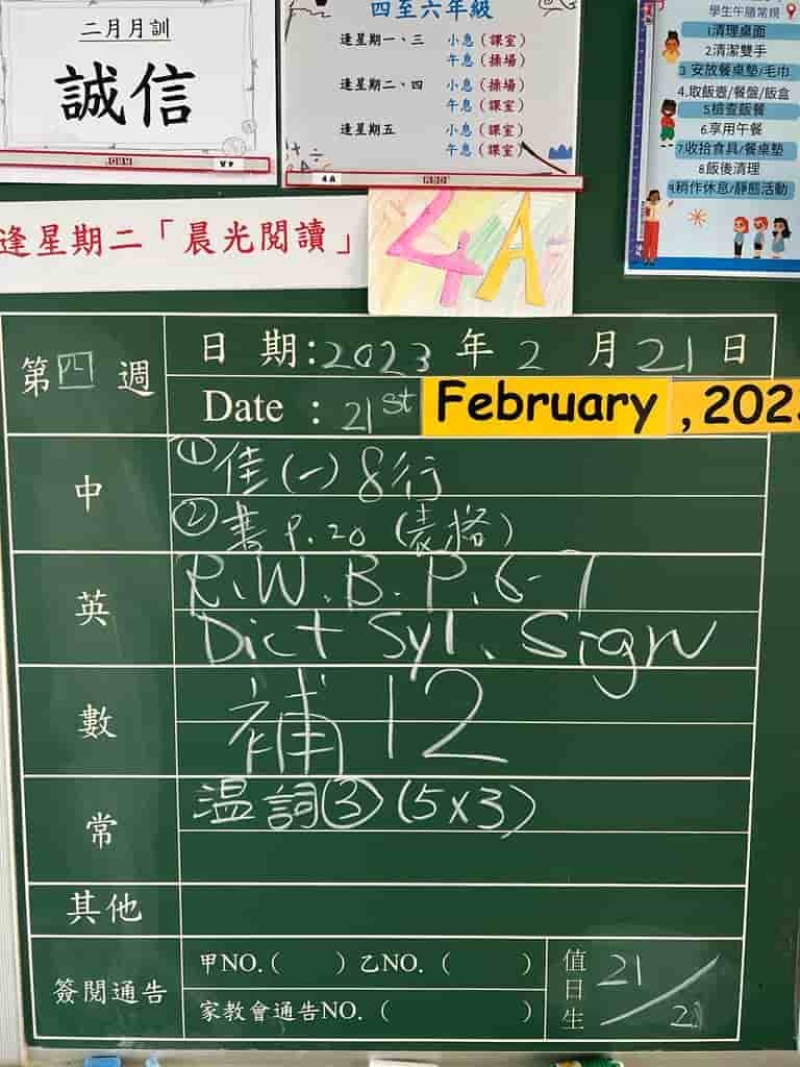 二月月訓
誠信
四至六年級
逢星期一、三 小息（課室）
午息（操場）
逢星期二、四 小息（操場）
午息（課室）
逢星期五 小息（課室）
午息（課室）
學生午膳常規
1清理桌面
2清潔雙手
3 安放餐桌墊/毛巾
4.取飯壺/餐盤/飯盒
5檢查飯餐
6.享用午餐
7.收拾食具/餐桌墊
8飯後清理
9稍作休息/靜態活動
逢星期二「晨光閱讀」
4A
第四週
日期:2023年2月21日
Date : 21st February , 202
中
①佳(一)8行
②書P.20（表格）
英
R.W.B. P.6-7
Dict Syl. Sign
數
補12
常
溫詞③(5x3)
其他
簽閱通告
甲NO.( ) 乙NO. ( )
家教會通告NO. ( )
值日生
21/21